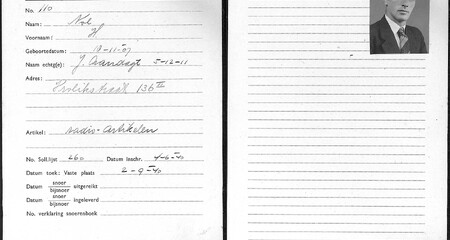 No. 110
Naam: Nol
Voornaam: H
Geboortedatum: -11-07
Naam echtg(e): J. 5-12-11
Adres: 136 II
Artikel: radio-artikelen
No. Soll.lijst 260 Datum inschr. 4-6-40
Datum toek: Vaste plaats 2-9-40
Datum snoer/bijsnoer uitgereikt
Datum snoer/bijsnoer ingeleverd
No. verklaring snoerenboek